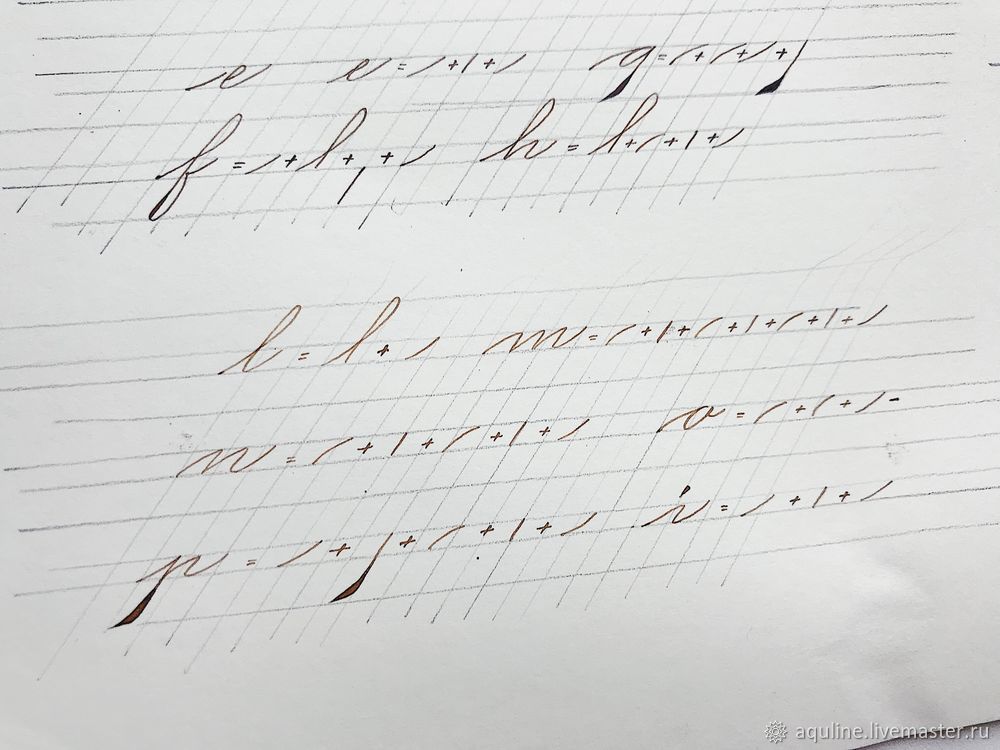 e e = + +  g = + + +
f = + l + , +  h = l + + +
l = l +  m = + + + + + +
n = + + + +  o = + + -
p = + + + +  i = + +
aquline.livemaster.ru